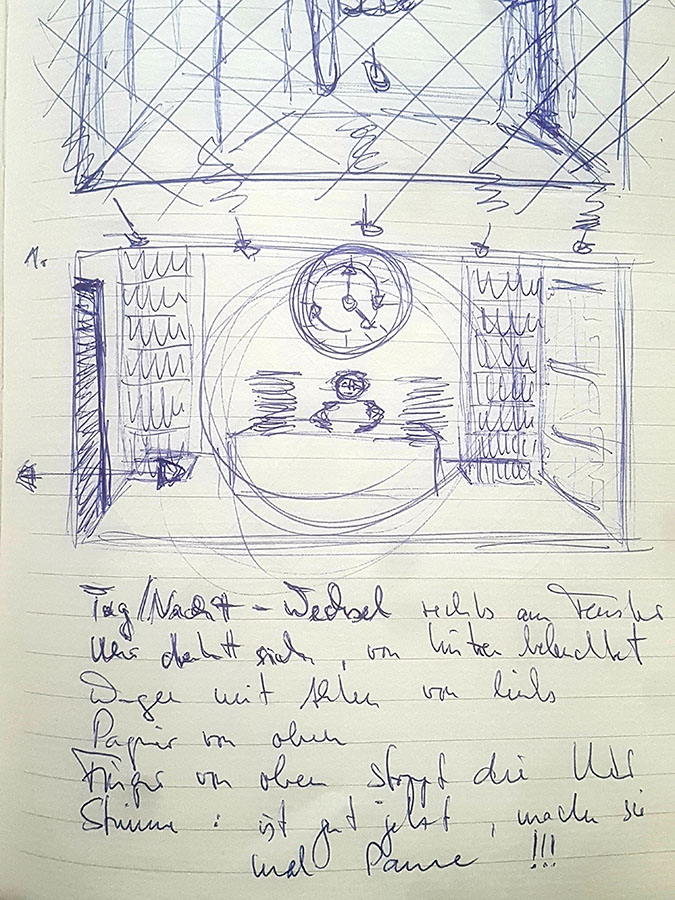 1.
Tag/Nacht-Wechsel rechts am Fenster
Uhr dreht sich, von hinten beleuchtet
Wagen mit Akten von links
Papier von oben
Finger von oben stoppt die Uhr
Stimme: ist gut jetzt, machen Sie
mal Pause !!!